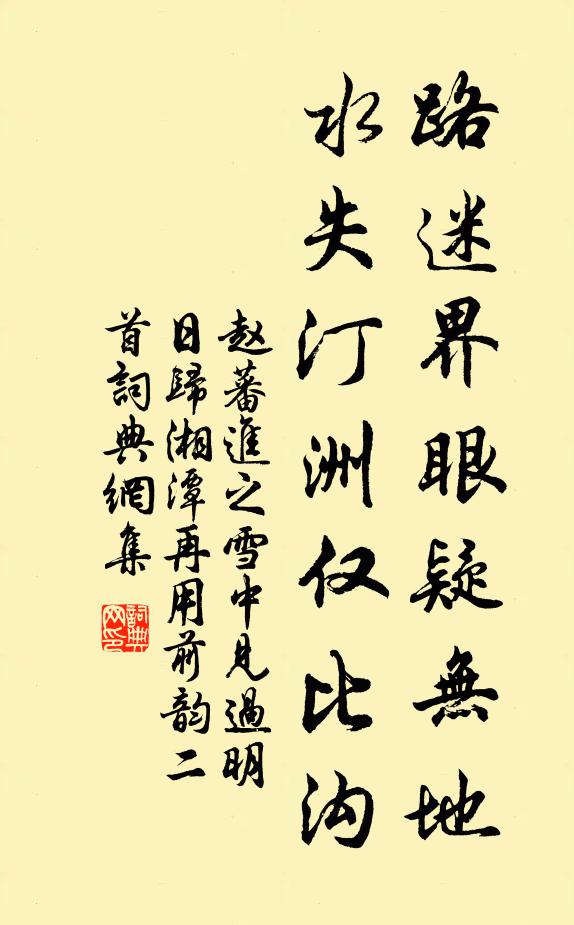 路迷界眼疑無地
水失汀洲仅比沟
赵蕃進之雪中見過明
日歸湘潭再用前韵二
首詞典網集
詞典
网印